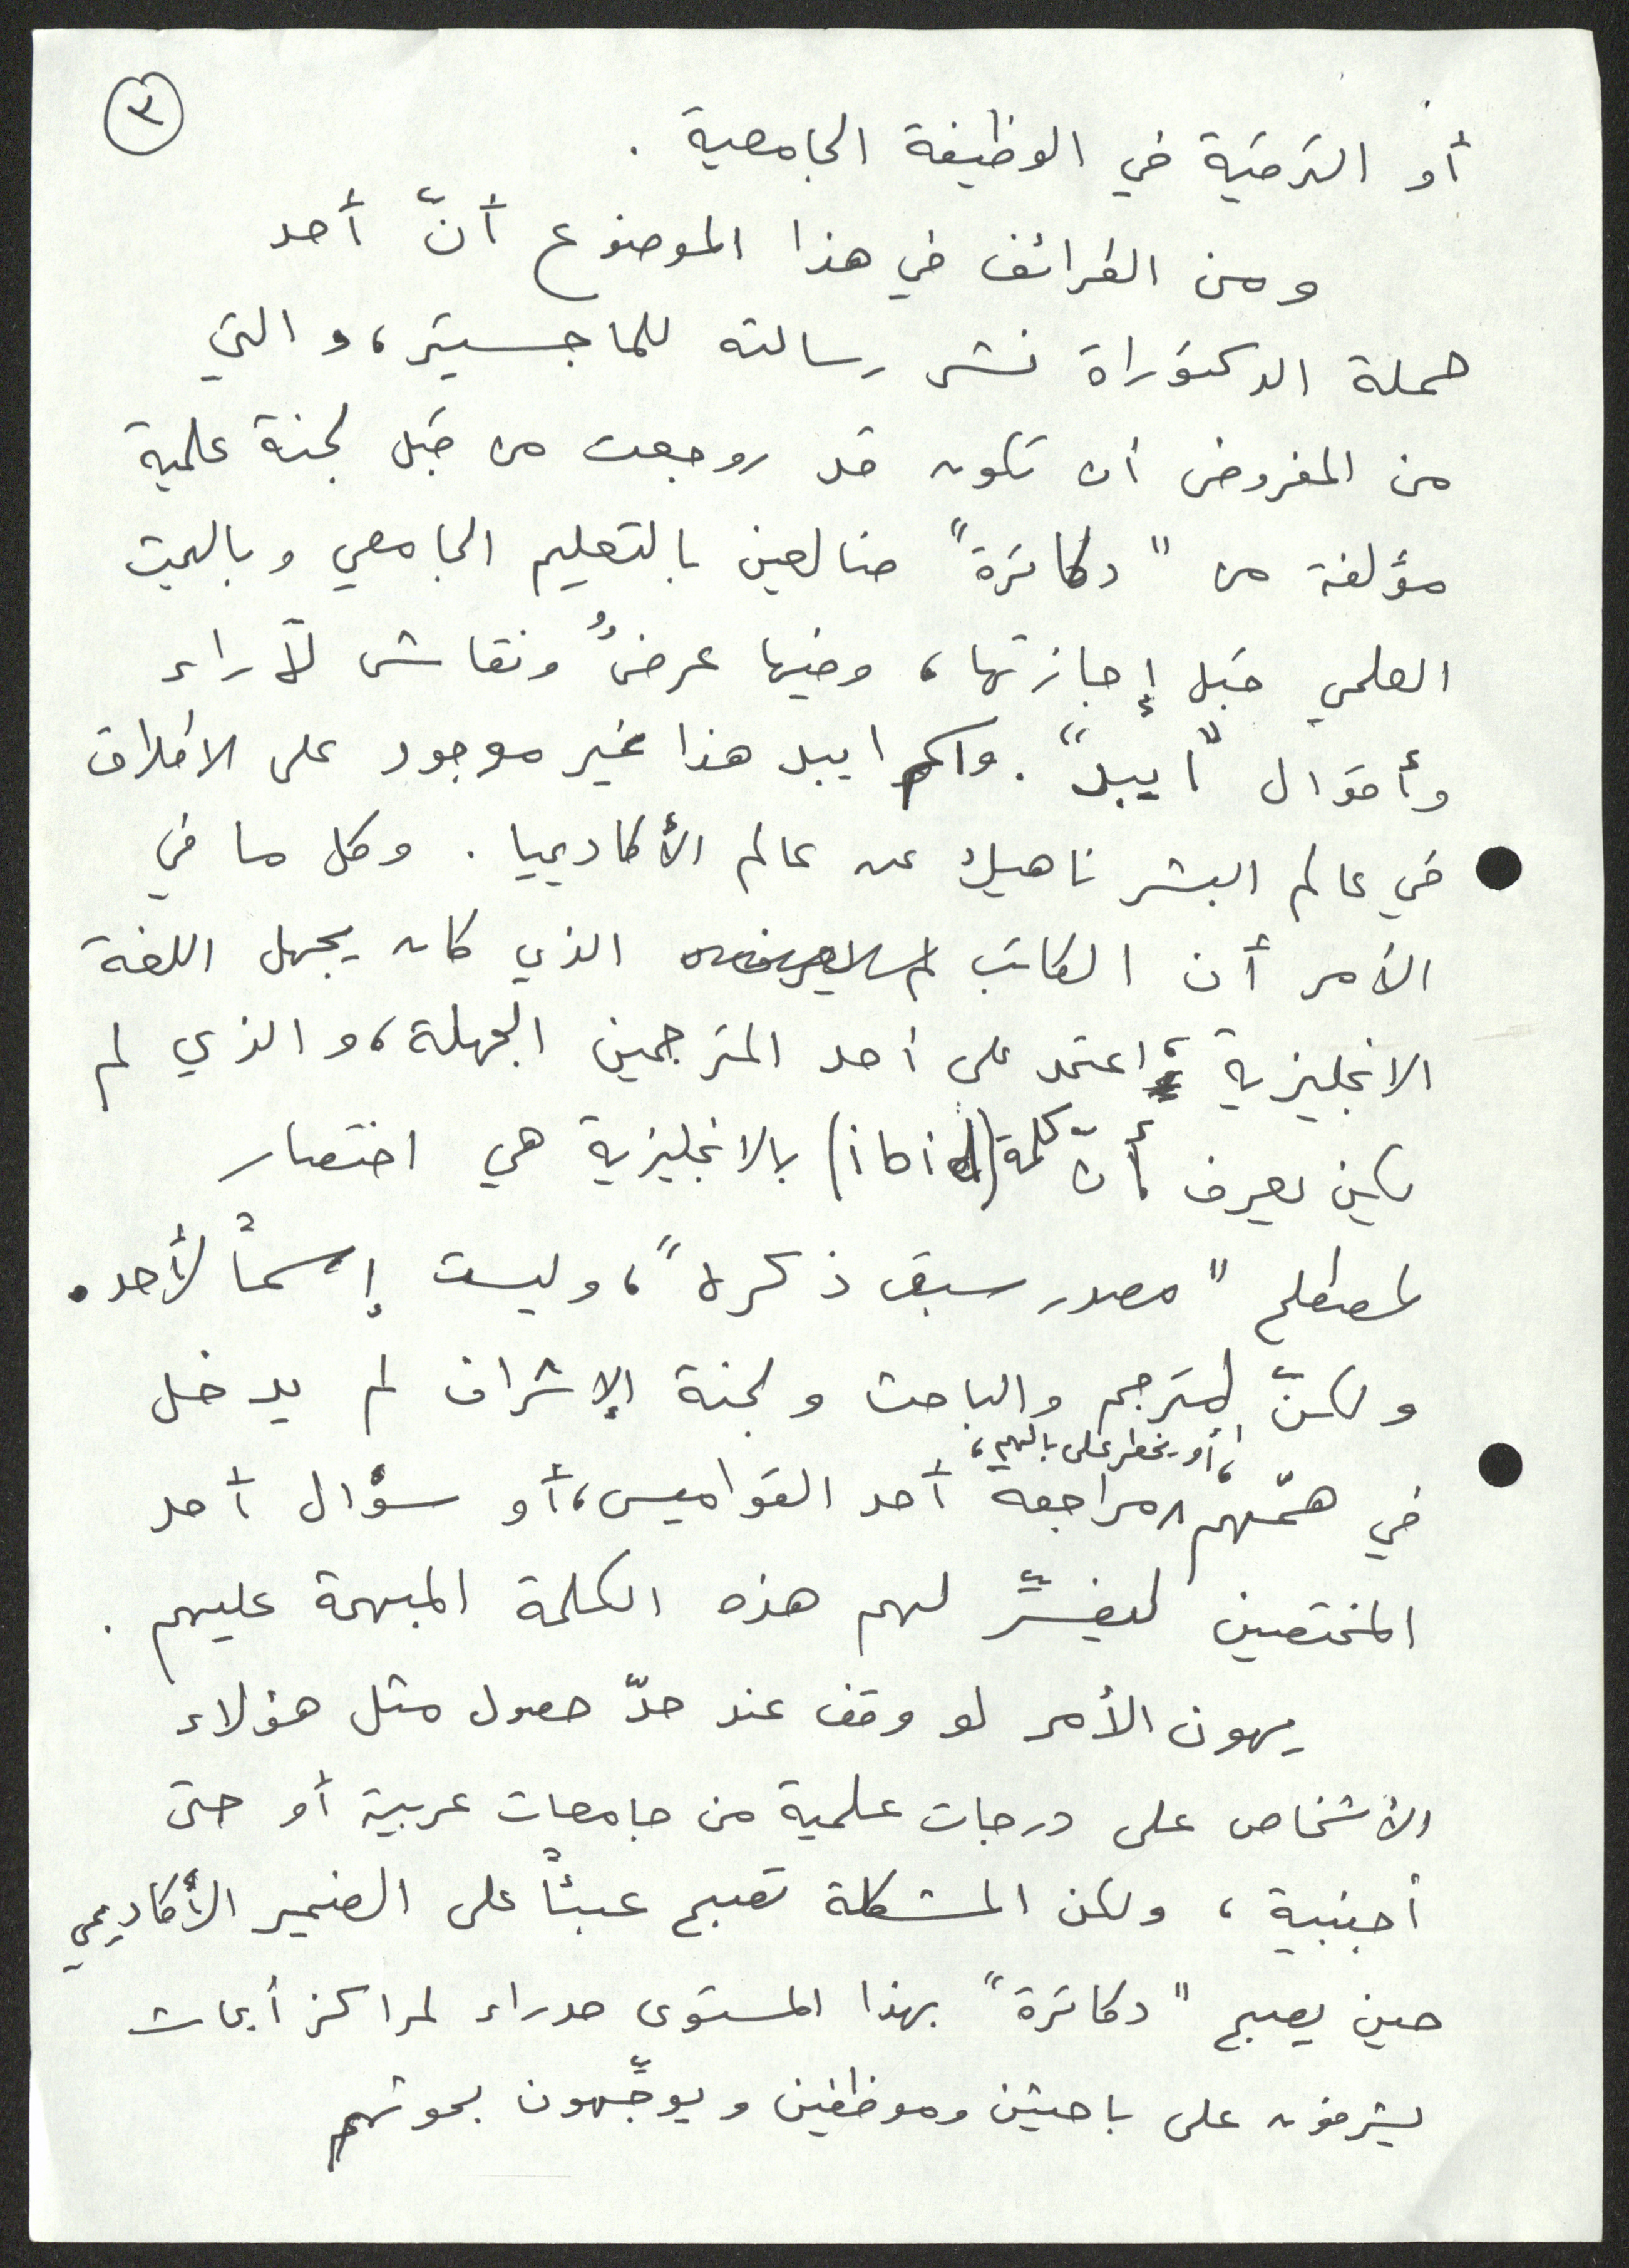 ٣
أو الترقية في الوظيفة الجامعية .
ومن الطرائف في هذا الموضوع أنّ أحد
حملة الدكتوراة نشر رسالته للماجستير، والتي
من المفروض أن تكون قد روجعت من قبل لجنة علمية
مؤلفة من "دكاترة" ضالعين بالتعليم الجامعي وبالبحث
العلمي قبل إجازتها، وفيها عرضٌ ونقاش لآراء
وأقوال "ايبد". واكم ايبد هذا غير موجود على الاطلاق
في عالم البشر ناهيك عن عالم الأكاديميا. وكل ما في
الأمر أن الكاتب الذي كان يجهل اللغة
الانجليزية، اعتمد على أحد المترجمين الجهلة، والذي لم
يكن يعرف أنّ كلمة (ibid) بالانجليزية هي اختصار
لمصطلح "مصدر سبق ذكره"، وليست إسماً لأحد.
ولكنّ المترجم والباحث ولجنة الإشراف لم يدخل
في همّهم، أو يخطر على بالهم، مراجعة أحد القواميس، أو سؤال أحد
المختصين ليفسِّر لهم هذه الكلمة المبهمة عليهم .
يهون الأمر لو وقف عند حدّ حصول مثل هؤلاء
الأشخاص على درجات علمية من جامعات عربية أو حتى
أجنبية، ولكن المشكلة تصبح عبئاً على الضمير الأكاديمي
حين يصبح "دكاترة" بهذا المستوى مدراء لمراكز أبحاث
يشرفون على باحثين وموظفين ويوجِّهون بحوثهم